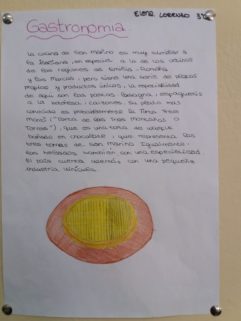 Elena Lorenzo 3ºC
Gastronomía
La cocina de San Marino es muy similar a
la italiana, en especial a la de las cocinas
de las regiones de Emilia-Romaña
y las Marcas; pero tiene una serie de platos
propios y productos únicos. La especialidad
de aquí son las pastas (lasagna, espaguetis
a la boloñesa, canelones). Su plato más
conocido es probablemente la Torta Tres
Monti ("Tarta de los tres montañas o
Torres"), que es una torta de
bañada en chocolate y que representa las
tres torres de San Marino. Igualmente,
los también son una especialidad.
El país cuenta además con una pequeña
industria vinícola.